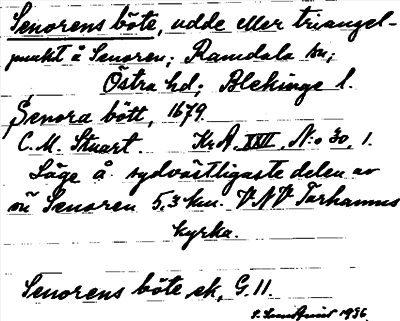 Senorens böte, udde eller triangel-
punkt å Senoren; Ramdala sn;
Östra hd; Blekinge l.
Senora bött, 1679.
C. M. Stuart. Kr. A. XXII, N:o 30, 1.
Läge å sydvästligaste delen av
ön Senoren 5,3 km. VNV Torhamns
kyrka.
Senorens böte ek, G. 11.
1936